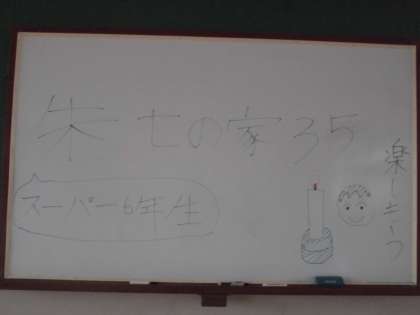 朱七の家35
スーパー6年生
楽しもーっ